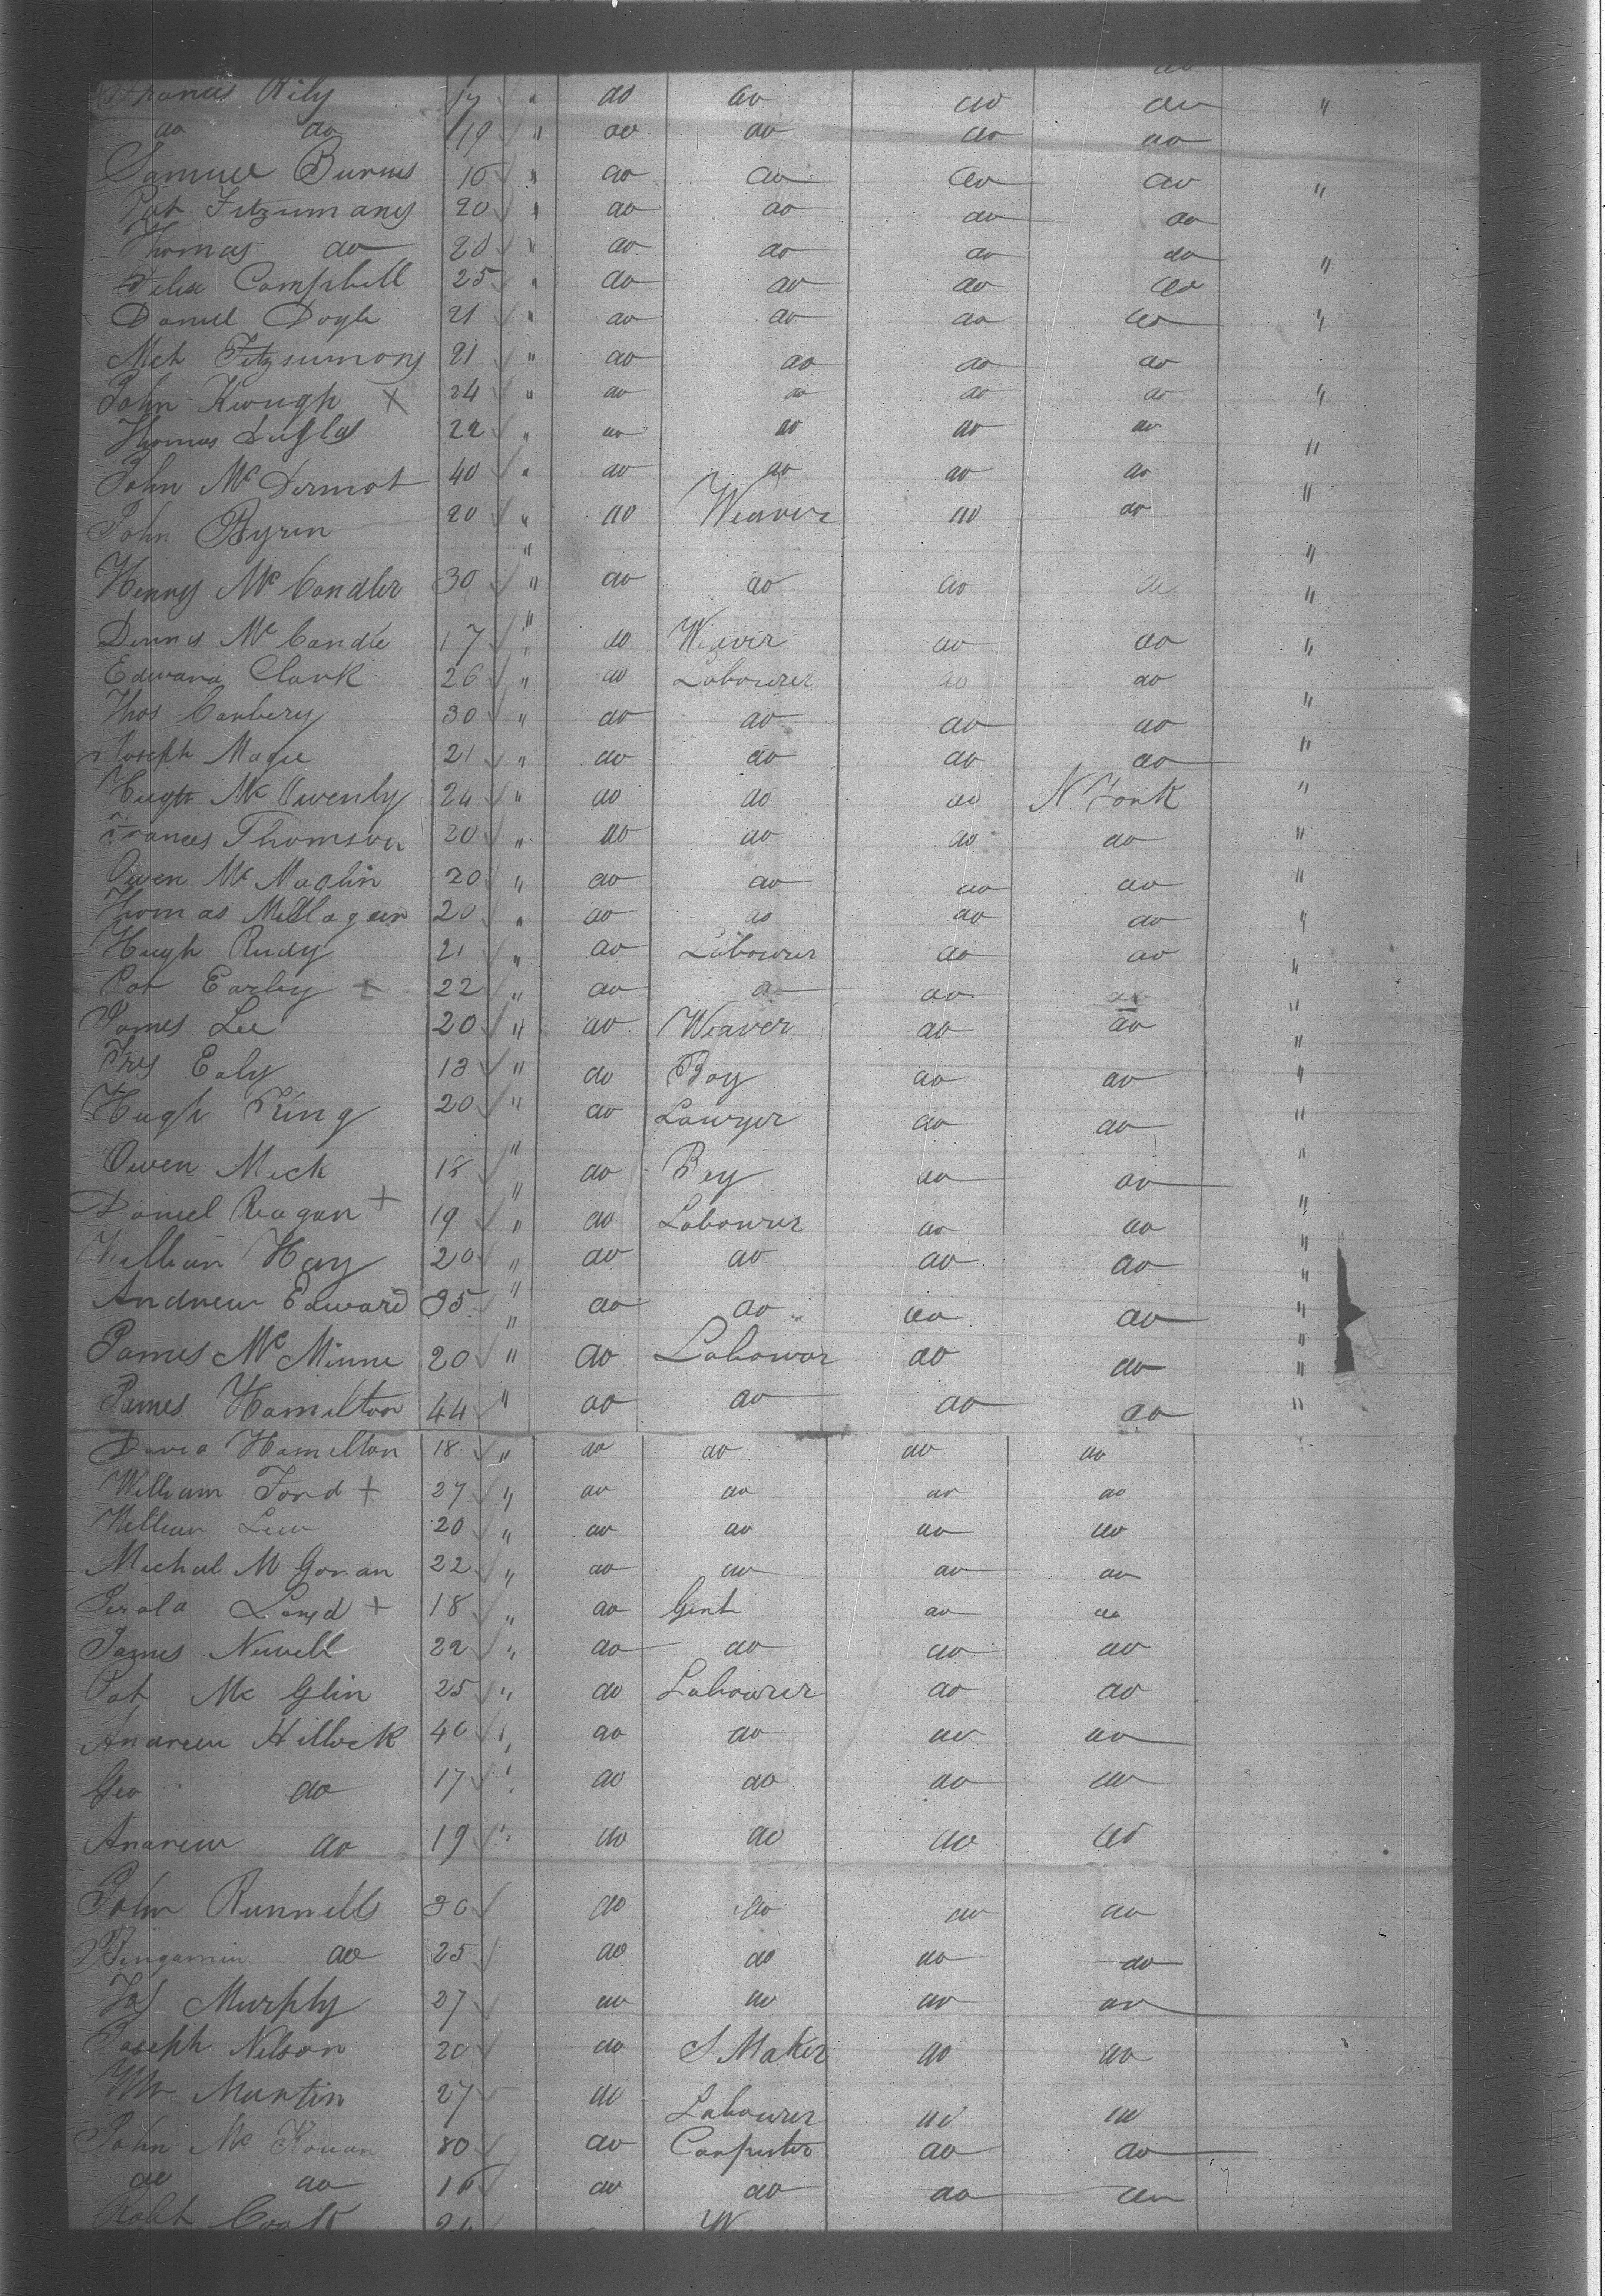 Francis Rily 17 " do do do do "
do do 19 " do do do do
Samuel Burns 16 " do do do do "
Pat Fitzumans 20 " do do do do
Thomas do 20 " do do do do "
Felix Campbell 25 " do do do do
Daniel Doyle 21 " do do do do "
Mch Fitzsumons 21 " do do do do
John Keough X 24 " do do do do "
Thomas Duglas 22 " do do do do "
John Mc Dermot 40 " do do do do "
John Byrin 20 " do Weaver do do "
Henry Mc Candler 30 " do do do do "
Dennis Mc Candle 17 " do Weaver do do "
Edward Clark 26 " do Labourer do do "
Thos Canbery 30 " do do do do "
Joseph Magee 21 " do do do do "
Hugh Mc Owenly 24 " do do do N York "
Frances Thomson 20 " do do do do "
Owen Mc Maglin 20 " do do do do "
Thomas 20 " do do do do "
Hugh Rudy 21 " do Labourer do do "
Pat Earley X 22 " do do do do "
James Lee 20 " do Weaver do do "
Fres Ealy 13 " do Boy do do "
Hugh King 20 " do Lawyer do do "
Owen Meck 12 " do Boy do do "
Daniel Reagan + 19 " do Labourer do do "
William Hay 20 " do do do do "
Andrew Edward 35 " do do do do "
James Mc Minne 20 " do Labowor do do "
James Hamilton 44 " do do do do "
David Hamilton 18 " do do do do
William Ford + 27 " do do do do
William 20 " do do do do
Michal M Gowan 22 " do do do do
Loyd + 18 " do Gent do do
James Newell 22 " do do do do
Pat Mc Glin 25 " do Labourer do do
Andrew Hillock 40 " do do do do
Geo do 17 " do do do do
Andrew do 19 " do do do do
John Runnells 30 do do do do
Bengamin do 25 do do do do
Jas Murphy 27 do do do do
Joseph Nelson 20 do S Maker do do
Wm Martin 27 do Labourer do do
John Mc Kowan do Carpenter do do
do do 16 do do do do
Robt